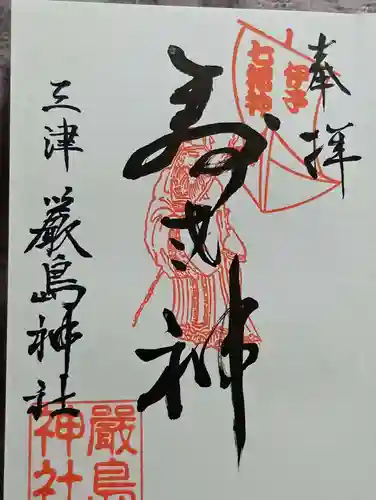 奉拝
伊予
七福神
寿老神
三津
厳島神社
厳島
神社